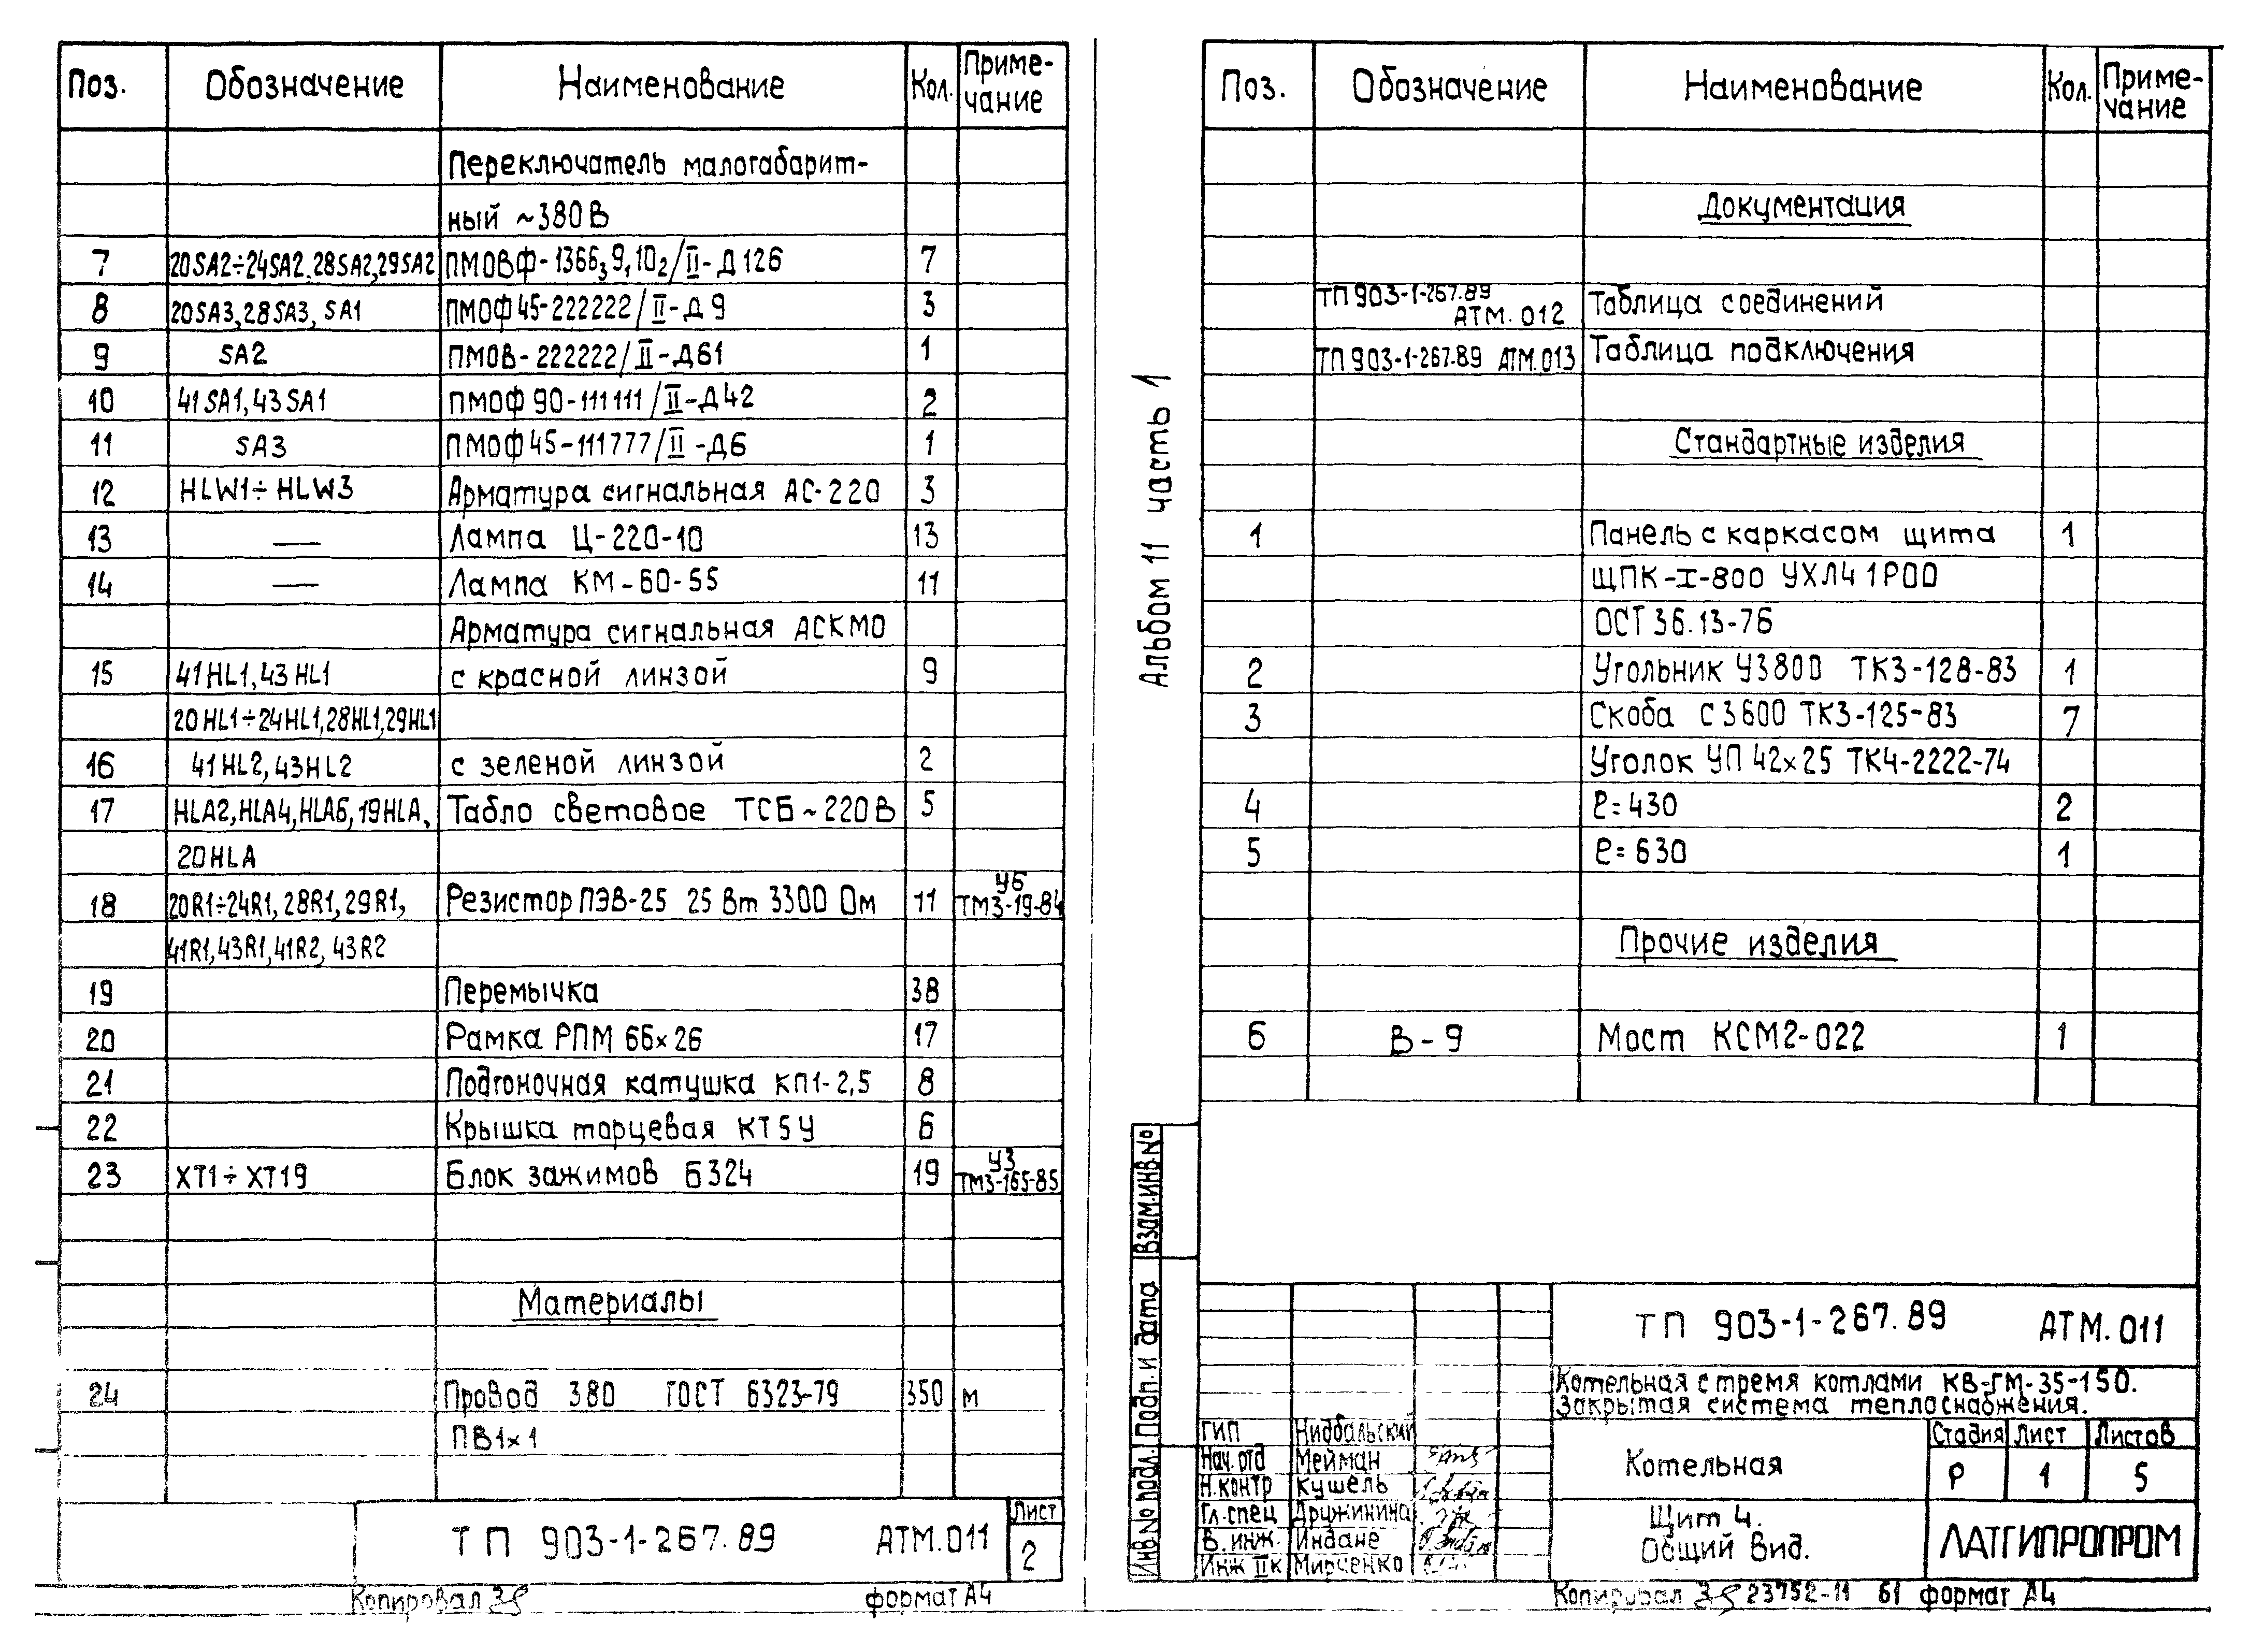 Поз. Обозначение Наименование Кол. Приме-
чание
Переключатель малогабарит-
ный ~380В
7 20SA2÷24SA2,28SA2,29SA2 ПМОВФ-1366₃9,10₂/II-Д126 7
8 20SA3,28SA3, SA1 ПМОФ45-222222/II-Д9 3
9 SA2 ПМОВ-222222/II-Д61 1
10 41SA1,43SA1 ПМОФ90-111111/II-Д42 2
11 SA3 ПМОФ45-111777/II-Д6 1
12 HLW1÷HLW3 Арматура сигнальная АС-220 3
13 — Лампа Ц-220-10 13
14 — Лампа КМ-60-55 11
Арматура сигнальная АСКМО
15 41HL1,43HL1 с красной линзой 9
20HL1÷24HL1,28HL1,29HL1
16 41HL2,43HL2 с зеленой линзой 2
17 HLA2,HLA4,HLA6,19HLA, Табло световое ТСБ~220В 5
20HLA
18 20R1÷24R1,28R1,29R1, Резистор ПЭВ-25 25Вт 3300 Ом 11 У6
ТМ3-19-84
41R1,43R1,41R2,43R2
19 Перемычка 38
20 Рамка РПМ 66×26 17
21 Подгоночная катушка КП1-2,5 8
22 Крышка торцевая КТ5У 6
23 XT1÷XT19 Блок зажимов Б324 19 У3
ТМ3-165-85
Материалы
24 Провод 380 ГОСТ 6323-79 350 м
ПВ1×1
ТП 903-1-267.89 АТМ.011 Лист
2
Копировал формат А4
Альбом 11 часть 1
Поз. Обозначение Наименование Кол. Приме-
чание
Документация
ТП903-1-267.89
АТМ.012 Таблица соединений
ТП903-1-267.89 АТМ.013 Таблица подключения
Стандартные изделия
1 Панель с каркасом щита 1
ЩПК-I-800 УХЛ4 1Р00
ОСТ 36.13-76
2 Угольник У3800 ТК3-128-83 1
3 Скоба С3600 ТК3-125-83 7
Уголок УП 42×25 ТК4-2222-74
4 ℓ=430 2
5 ℓ=630 1
Прочие изделия
6 В-9 Мост КСМ2-022 1
Взам.инв.№
Подп. и дата
Инв.№ подл.
ТП 903-1-267.89 АТМ.011
Котельная с тремя котлами КВ-ГМ-35-150.
Закрытая система теплоснабжения.
ГИП Нидбальский
Нач.отд Мейман
Н.контр Кушель
Гл.спец Дружинина
В.инж. Индане
Инж IIк Мирченко
Котельная
Стадия Лист Листов
Р 1 5
Щит 4.
Общий вид.
ЛАТГИПРОПРОМ
Копировал 23752-11 61 формат А4